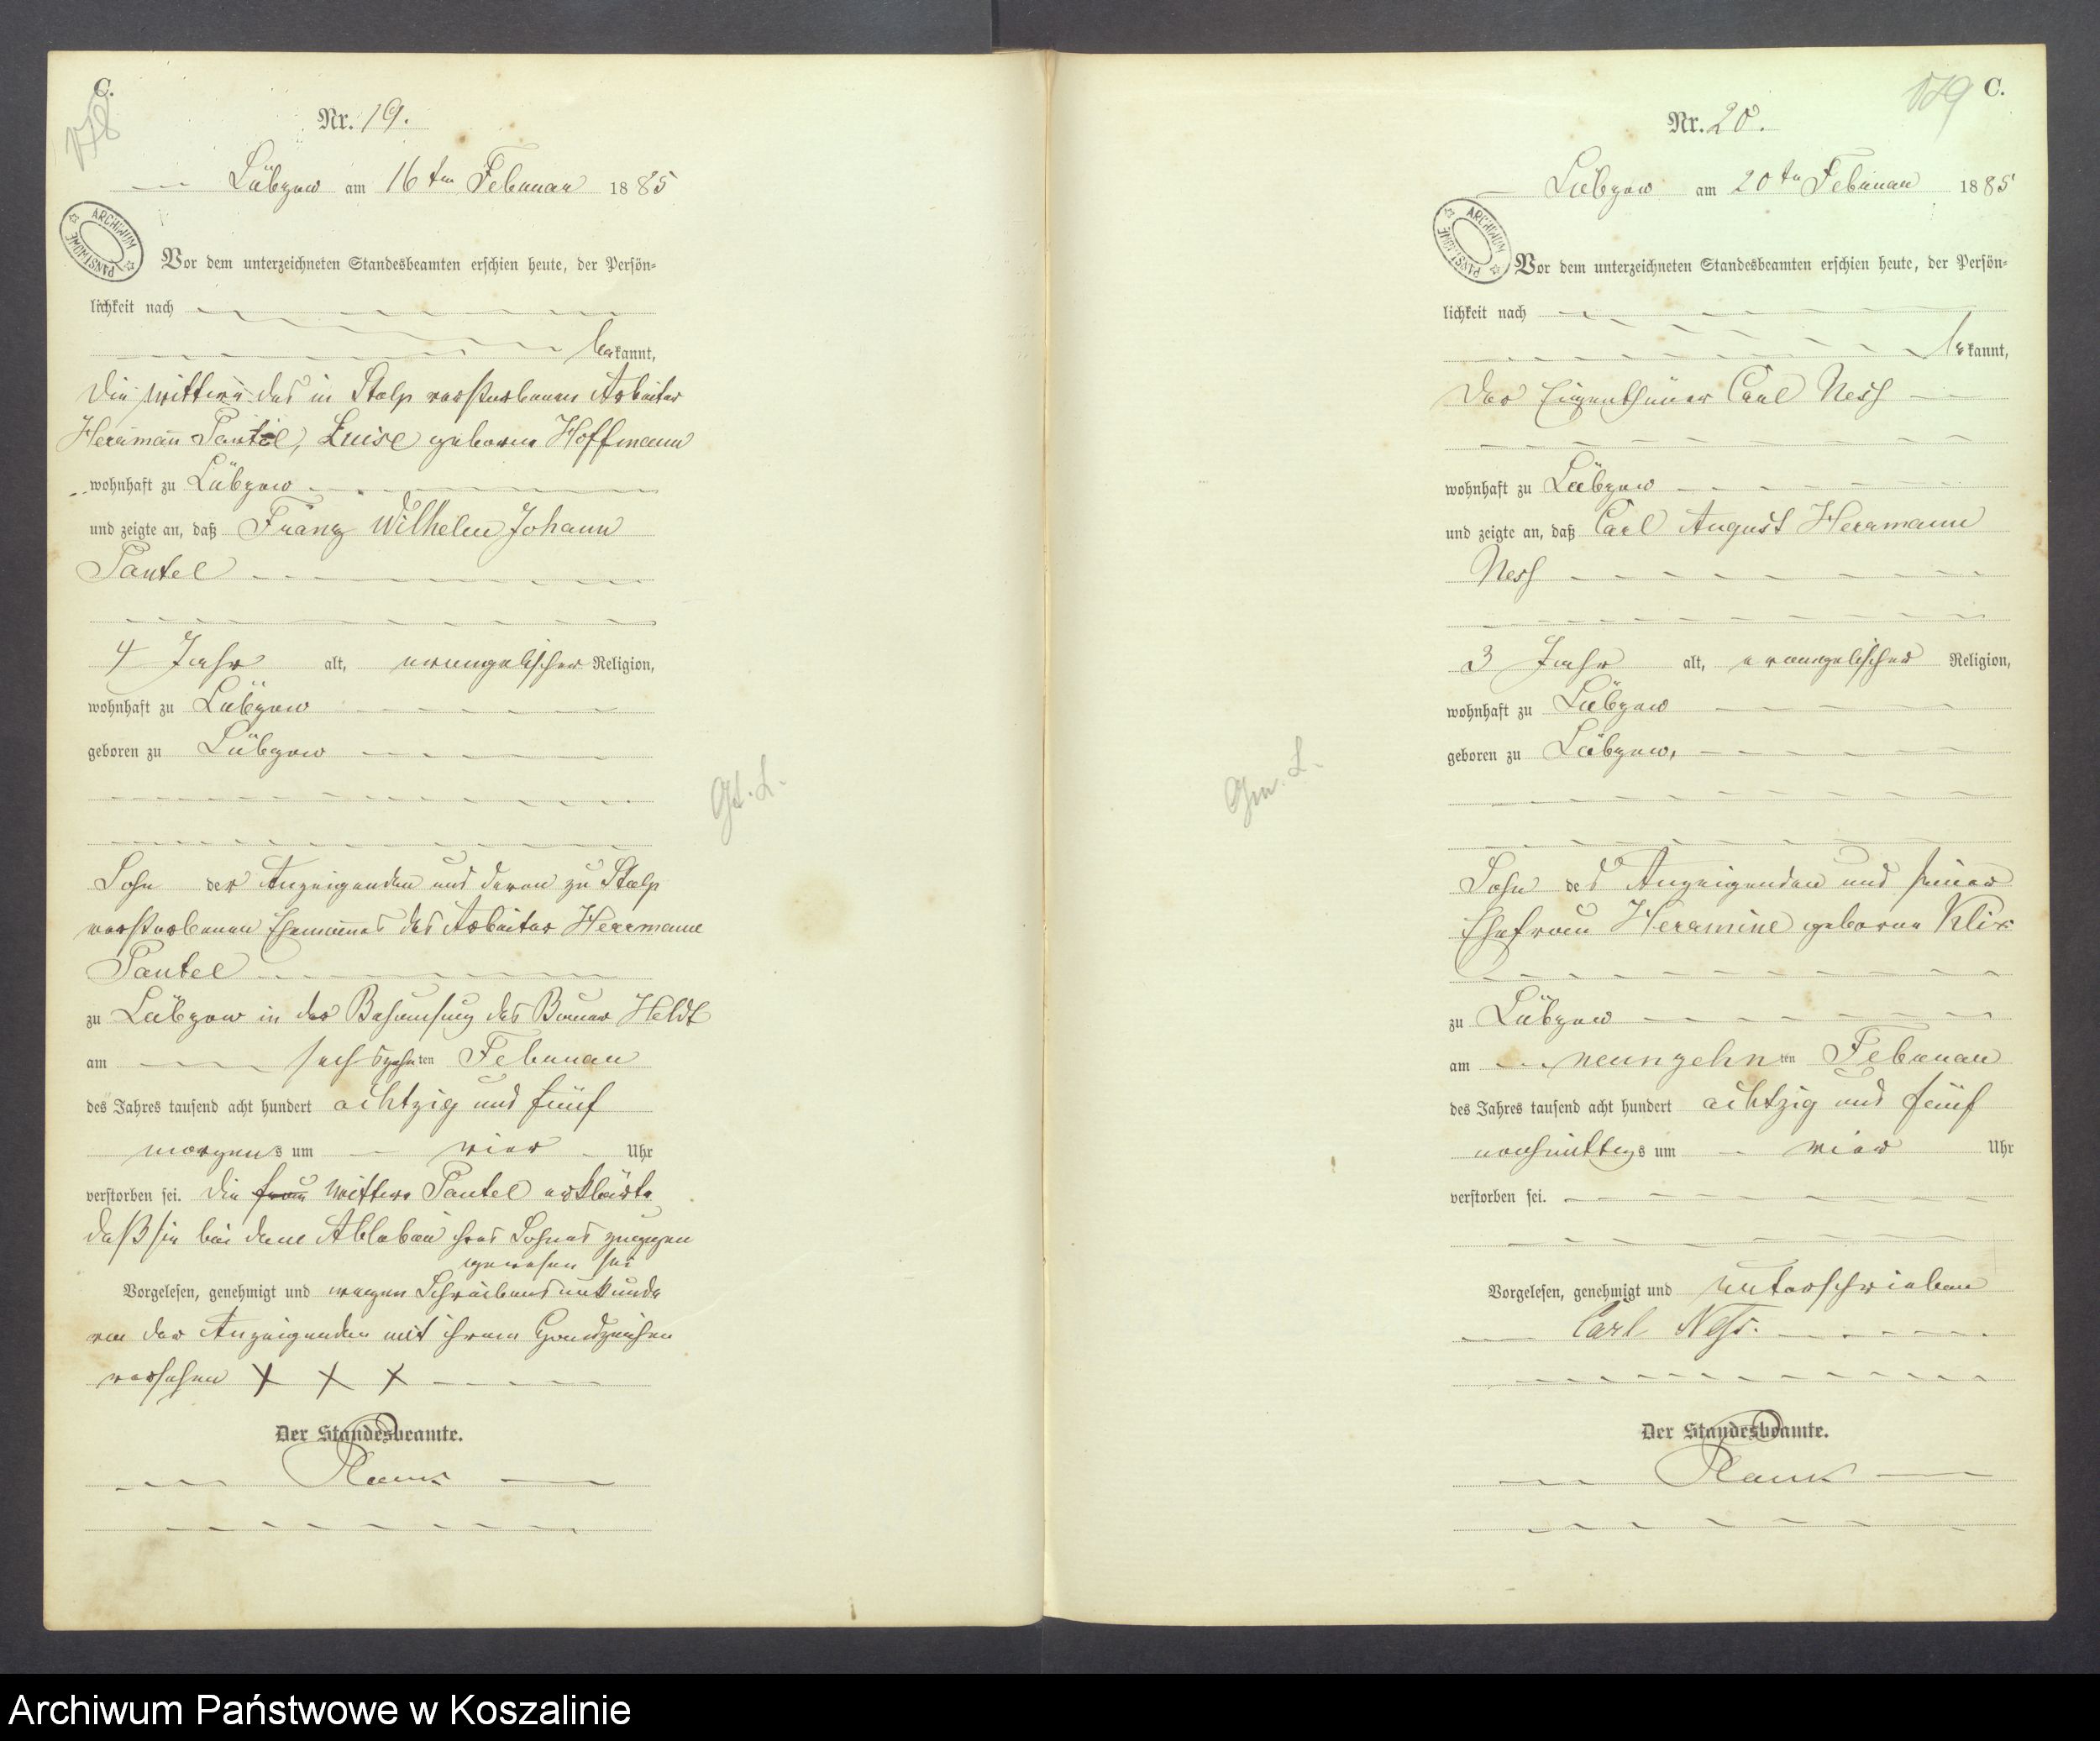 C.
178
Nr. 19.
Lübzow am 16ten Februar 1885
ARCHIWUM PAŃSTWOWE
Vor dem unterzeichneten Standesbeamten erschien heute, der Persön-
lichkeit nach
bekannt,
die Wittwe des in Stolp verstorbenen Arbeiter
Herrmann Pantel, Luise geborne Hoffmann
wohnhaft zu Lübzow
und zeigte an, daß Franz Wilhelm Johann
Pantel
4 Jahr alt, evangelischer Religion,
wohnhaft zu Lübzow
geboren zu Lübzow
Gt. L.
Sohn der Anzeigenden und deren zu Stolp
verstorbenen Ehemannes des Arbeiter Herrmann
Pantel
zu Lübzow in der Behausung des Bauer Heldt
am sechszehnten Februar
des Jahres tausend acht hundert achtzig und fünf
morgens um vier Uhr
verstorben sei. Die Frau Wittwe Pantel erklärte
daß sie bei dem Ableben ihres Sohnes zugegen
gewesen sei
Vorgelesen, genehmigt und wegen Schreibensunkunde
von der Anzeigenden mit ihrem Handzeichen
versehen X X X
Der Standesbeamte.
Plank
179
C.
Nr. 20.
Lübzow am 20ten Februar 1885
ARCHIWUM PAŃSTWOWE
Vor dem unterzeichneten Standesbeamten erschien heute, der Persön-
lichkeit nach
bekannt,
der Eigenthümer Carl Ness
wohnhaft zu Lübzow
und zeigte an, daß Carl August Herrmann
Ness
3 Jahr alt, evangelischer Religion,
wohnhaft zu Lübzow
geboren zu Lübzow,
Gm. L.
Sohn des Anzeigenden und seiner
Ehefrau Herrmine geborne Klix
zu Lübzow
am neunzehnten Februar
des Jahres tausend acht hundert achtzig und fünf
nachmittags um vier Uhr
verstorben sei.
Vorgelesen, genehmigt und unterschrieben
Carl Ness.
Der Standesbeamte.
Plank
Archiwum Państwowe w Koszalinie